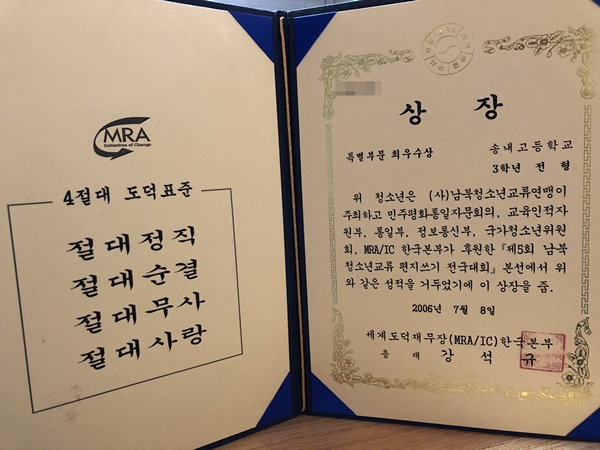 MRA
Initiatives of Change
4절대 도덕표준
절대정직
절대순결
절대무사
절대사랑
상 장
특별부문 최우수상
송내고등학교
3학년 전 형
위 청소년은 (사)남북청소년교류연맹이
주최하고 민주평화통일자문회의, 교육인적자
원부, 통일부, 정보통신부, 국가청소년위원
회, MRA/IC 한국본부가 후원한 『제5회 남북
청소년교류 편지쓰기 전국대회』 본선에서 위
와 같은 성적을 거두었기에 이 상장을 줌.
2006년 7월 8일
세계도덕재무장(MRA/IC)한국본부
총 재 강 석 규